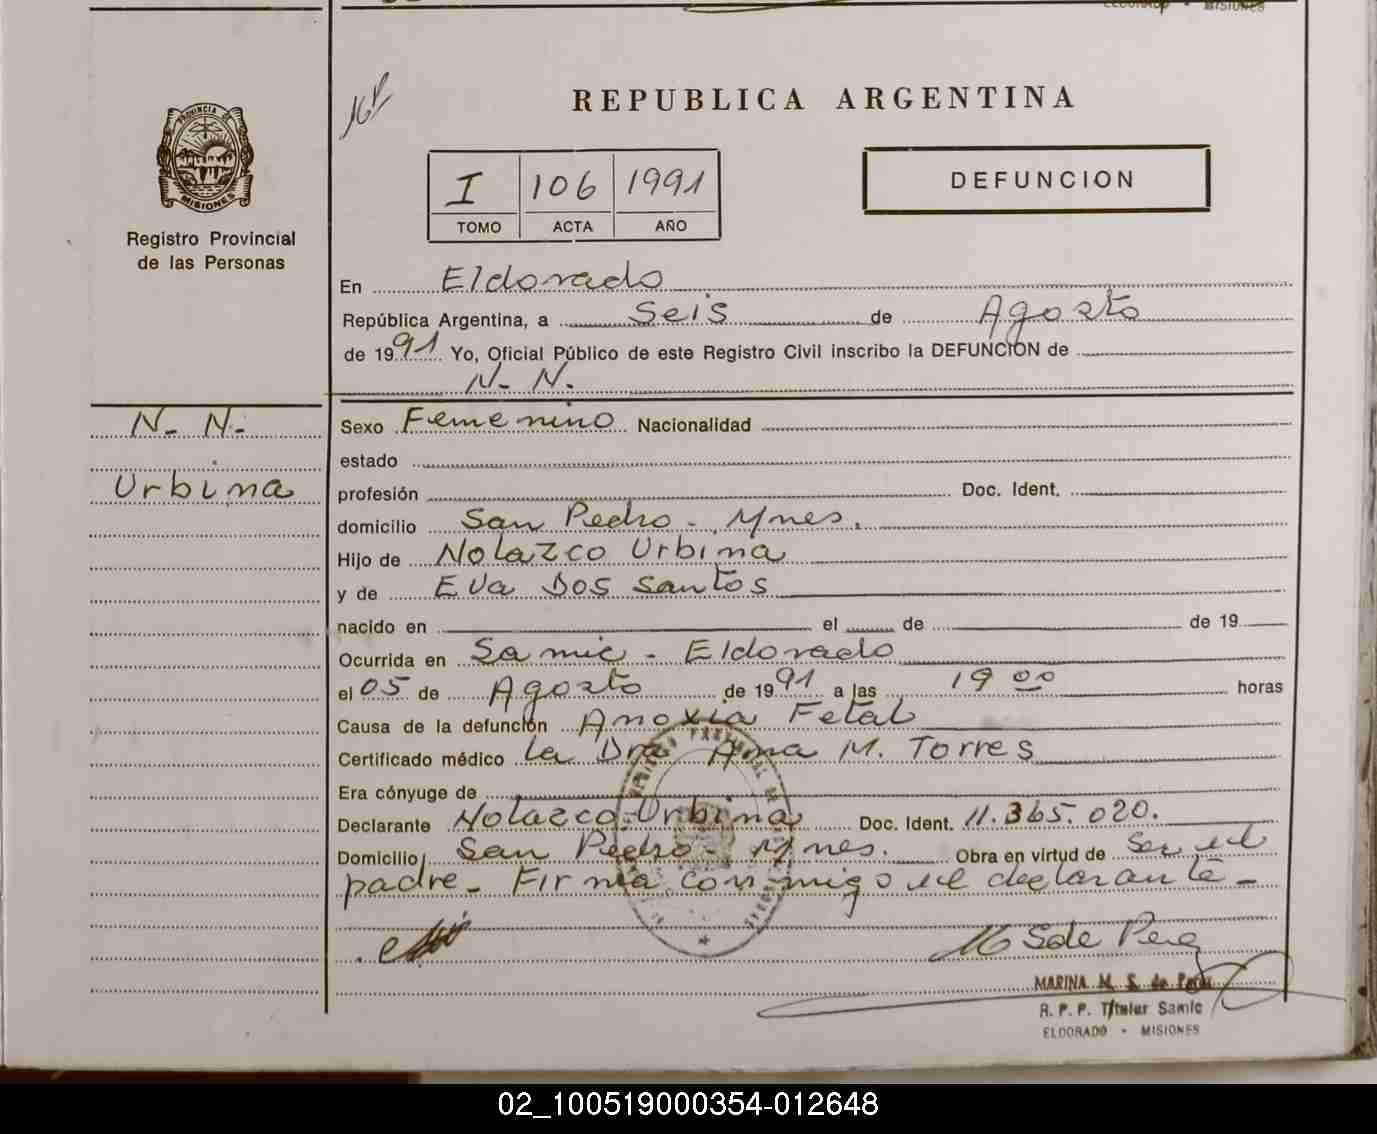 REPUBLICA ARGENTINA
PROVINCIA DE MISIONES
Registro Provincial
de las Personas
I 106 1991
TOMO ACTA AÑO
DEFUNCION
En Eldorado
República Argentina, a Seis de Agosto
de 1991 Yo, Oficial Público de este Registro Civil inscribo la DEFUNCION de
N. N.
N. N.
Urbina
Sexo Femenino Nacionalidad
estado
profesión Doc. Ident.
domicilio San Pedro - Mnes.
Hijo de Nolazco Urbina
y de Eva Dos Santos
nacido en el de de 19
Ocurrida en Samic - Eldorado
el 05 de Agosto de 1991 a las 19 00 horas
Causa de la defunción Anoxia Fetal
Certificado médico la Dra Ana M. Torres
Era cónyuge de
Declarante Nolazco Urbina Doc. Ident. 11.365.020.
Domicilio San Pedro - Mnes. Obra en virtud de Ser el
padre - Firma conmigo el declarante -
MARINA M. S. de
R. P. P. Titular Samic
ELDORADO - MISIONES
02_100519000354-012648